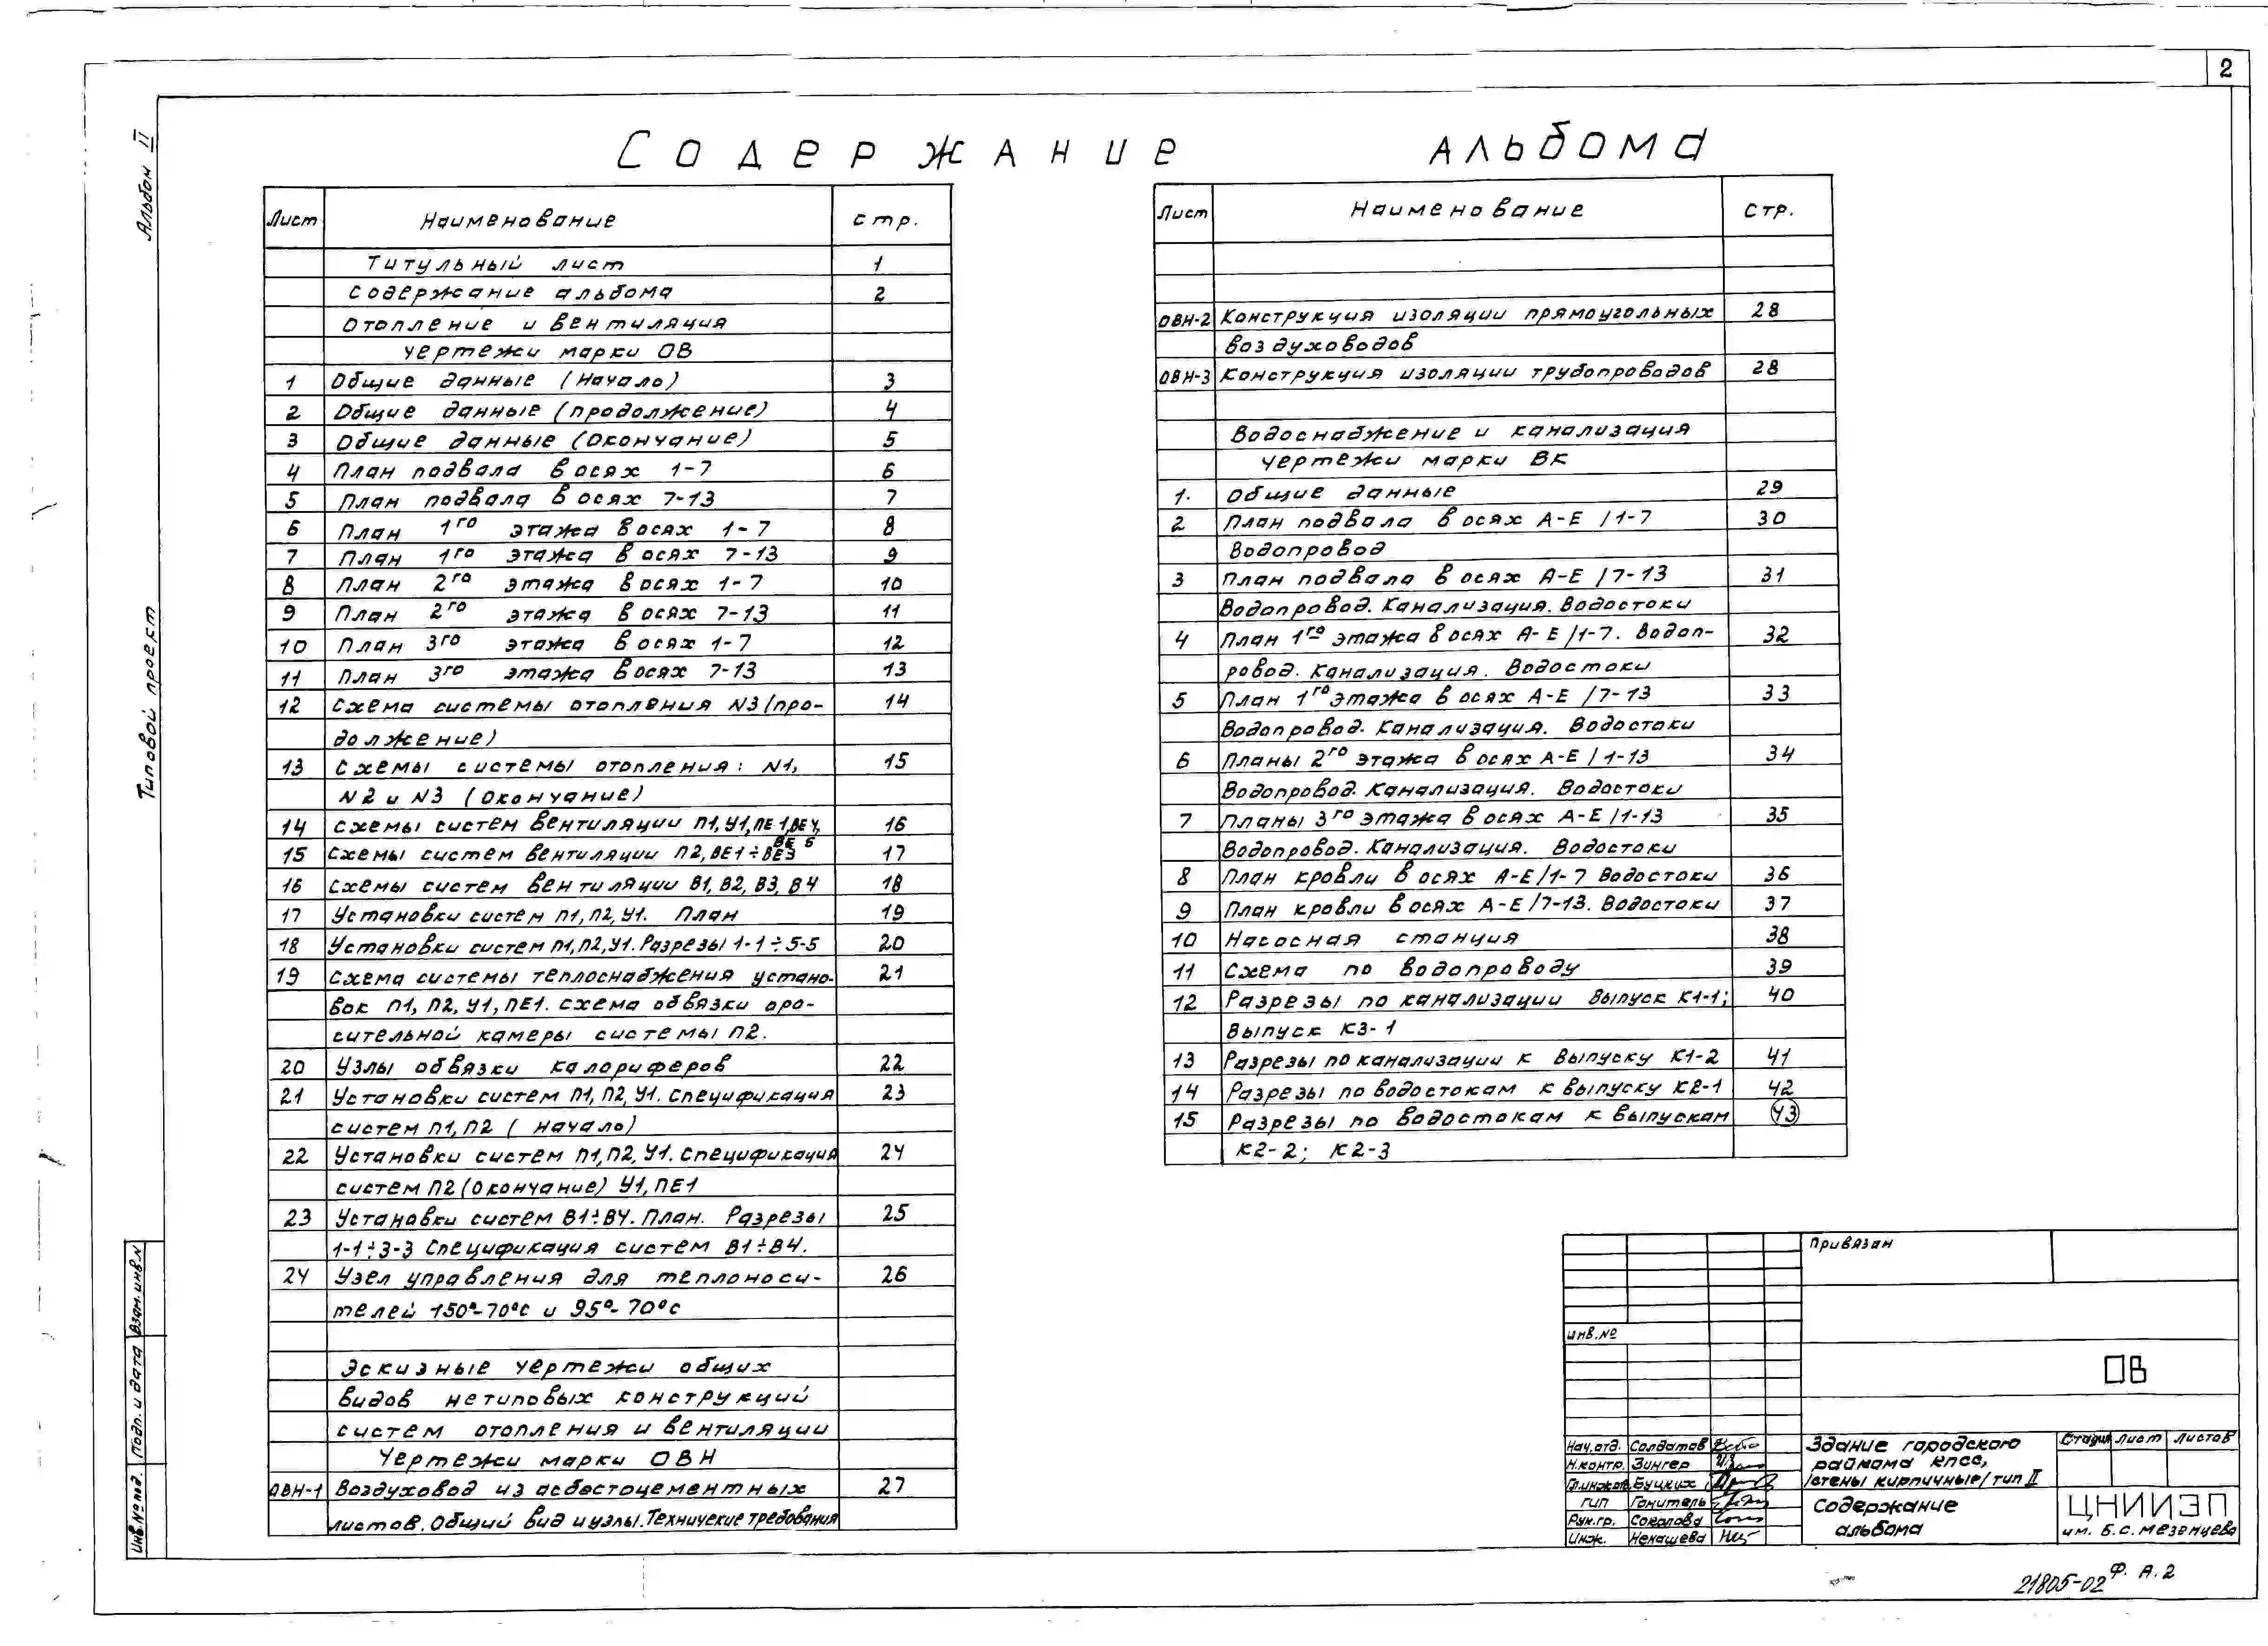 2
Альбом II
Типовой проект
Содержание альбома
Лист Наименование стр.
Титульный лист 1
Содержание альбома 2
Отопление и вентиляция
чертежи марки ОВ
1 Общие данные (Начало) 3
2 Общие данные (продолжение) 4
3 Общие данные (Окончание) 5
4 План подвала в осях 1-7 6
5 План подвала в осях 7-13 7
6 План 1го этажа в осях 1-7 8
7 План 1го этажа в осях 7-13 9
8 План 2го этажа в осях 1-7 10
9 План 2го этажа в осях 7-13 11
10 План 3го этажа в осях 1-7 12
11 План 3го этажа в осях 7-13 13
12 Схема системы отопления N3/про- 14
должение)
13 Схемы системы отопления: N1, 15
N2 и N3 (Окончание)
14 Схемы систем вентиляции П1, У1, ПЕ1, ВЕ4, 16
ВЕ6
15 Схемы систем вентиляции П2, ВЕ1÷ВЕ3 17
16 Схемы систем вентиляции В1, В2, В3, В4 18
17 Установки систем П1, П2, У1. План 19
18 Установки систем П1, П2, У1. Разрезы 1-1÷5-5 20
19 Схема системы теплоснабжения устано- 21
вок П1, П2, У1, ПЕ1. Схема обвязки оро-
сительной камеры системы П2.
20 Узлы обвязки калориферов 22
21 Установки систем П1, П2, У1. Спецификация 23
систем П1, П2 (Начало)
22 Установки систем П1, П2, У1. Спецификация 24
систем П2 (Окончание) У1, ПЕ1
23 Установки систем В1÷В4. План. Разрезы 25
1-1÷3-3 Спецификация систем В1÷В4.
24 Узел управления для теплоноси- 26
телей 150°-70°с и 95°-70°с
Эскизные чертежи общих
видов нетиповых конструкций
систем отопления и вентиляции
Чертежи марки ОВН
ОВН-1 Воздуховод из асбестоцементных 27
листов. Общий вид и узлы. Техничекие требования
Лист Наименование стр.
ОВН-2 Конструкция изоляции прямоугольных 28
воздуховодов
ОВН-3 Конструкция изоляции трубопроводов 28
Водоснабжение и канализация
чертежи марки ВК
1. Общие данные 29
2 План подвала в осях А-Е /1-7 30
Водопровод
3 План подвала в осях А-Е /7-13 31
Водопровод. Канализация. Водостоки
4 План 1го этажа в осях А-Е /1-7. Водоп- 32
ровод. Канализация. Водостоки
5 План 1го этажа в осях А-Е /7-13 33
Водопровод. Канализация. Водостоки
6 Планы 2го этажа в осях А-Е /1-13 34
Водопровод. Канализация. Водостоки
7 Планы 3го этажа в осях А-Е /1-13 35
Водопровод. Канализация. Водостоки
8 План кровли в осях А-Е/1-7 Водостоки 36
9 План кровли в осях А-Е/7-13. Водостоки 37
10 Насосная станция 38
11 Схема по водопроводу 39
12 Разрезы по канализации Выпуск К1-1; 40
Выпуск К3-1
13 Разрезы по канализации к выпуску К1-2 41
14 Разрезы по водостокам к выпуску К2-1 42
15 Разрезы по водостокам к выпускам 43
К2-2; К2-3
Привязан
инв.№
ОВ
Нач.отд. Солдатов
Н.контр. Зингер
Гл.инж.от. Буцких
ГИП Гонитель
Рук.гр. Соколова
Инж. Ненашева
Здание городского
райкома КПСС,
/стены кирпичные/ тип II
Содержание
альбома
Стадия Лист Листов
ЦНИИЭП
им. Б.С. Мезенцева
21805-02 Ф. А.2
Инв.№ под. Подп. и дата Взам.инв.№